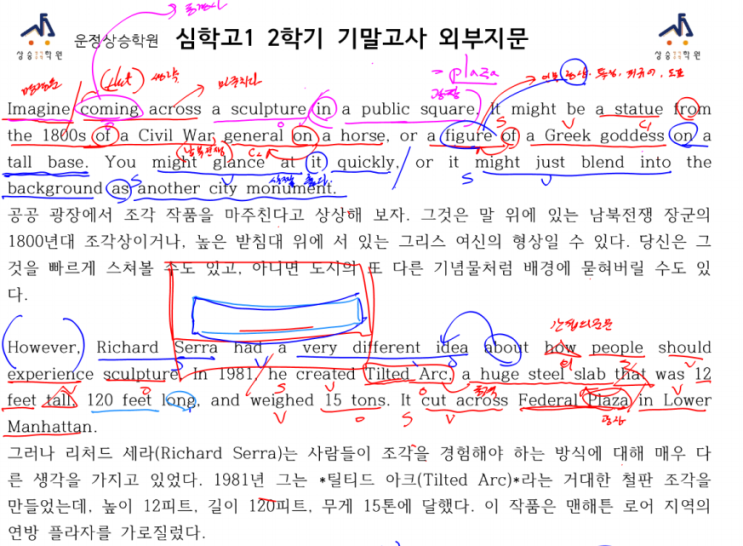 출현사
상승학원
운정상승학원 심학고1 2학기 기말고사 외부지문
상승학원
= plaza
광장
마주치다
Imagine coming across a sculpture in a public square. It might be a statue from
the 1800s of a Civil War general on a horse, or a figure of a Greek goddess on a
남북전쟁
tall base. You might glance at it quickly, or it might just blend into the
background as another city monument.
공공 광장에서 조각 작품을 마주친다고 상상해 보자. 그것은 말 위에 있는 남북전쟁 장군의
1800년대 조각상이거나, 높은 받침대 위에 서 있는 그리스 여신의 형상일 수 있다. 당신은 그
것을 빠르게 스쳐볼 수도 있고, 아니면 도시의 또 다른 기념물처럼 배경에 묻혀버릴 수도 있
다.
간접의문문
However, Richard Serra had a very different idea about how people should
experience sculpture. In 1981, he created Tilted Arc, a huge steel slab that was 12
feet tall, 120 feet long, and weighed 15 tons. It cut across Federal Plaza in Lower
광장
Manhattan.
그러나 리처드 세라(Richard Serra)는 사람들이 조각을 경험해야 하는 방식에 대해 매우 다
른 생각을 가지고 있었다. 1981년 그는 *틸티드 아크(Tilted Arc)*라는 거대한 철판 조각을
만들었는데, 높이 12피트, 길이 120피트, 무게 15톤에 달했다. 이 작품은 맨해튼 로어 지역의
연방 플라자를 가로질렀다.